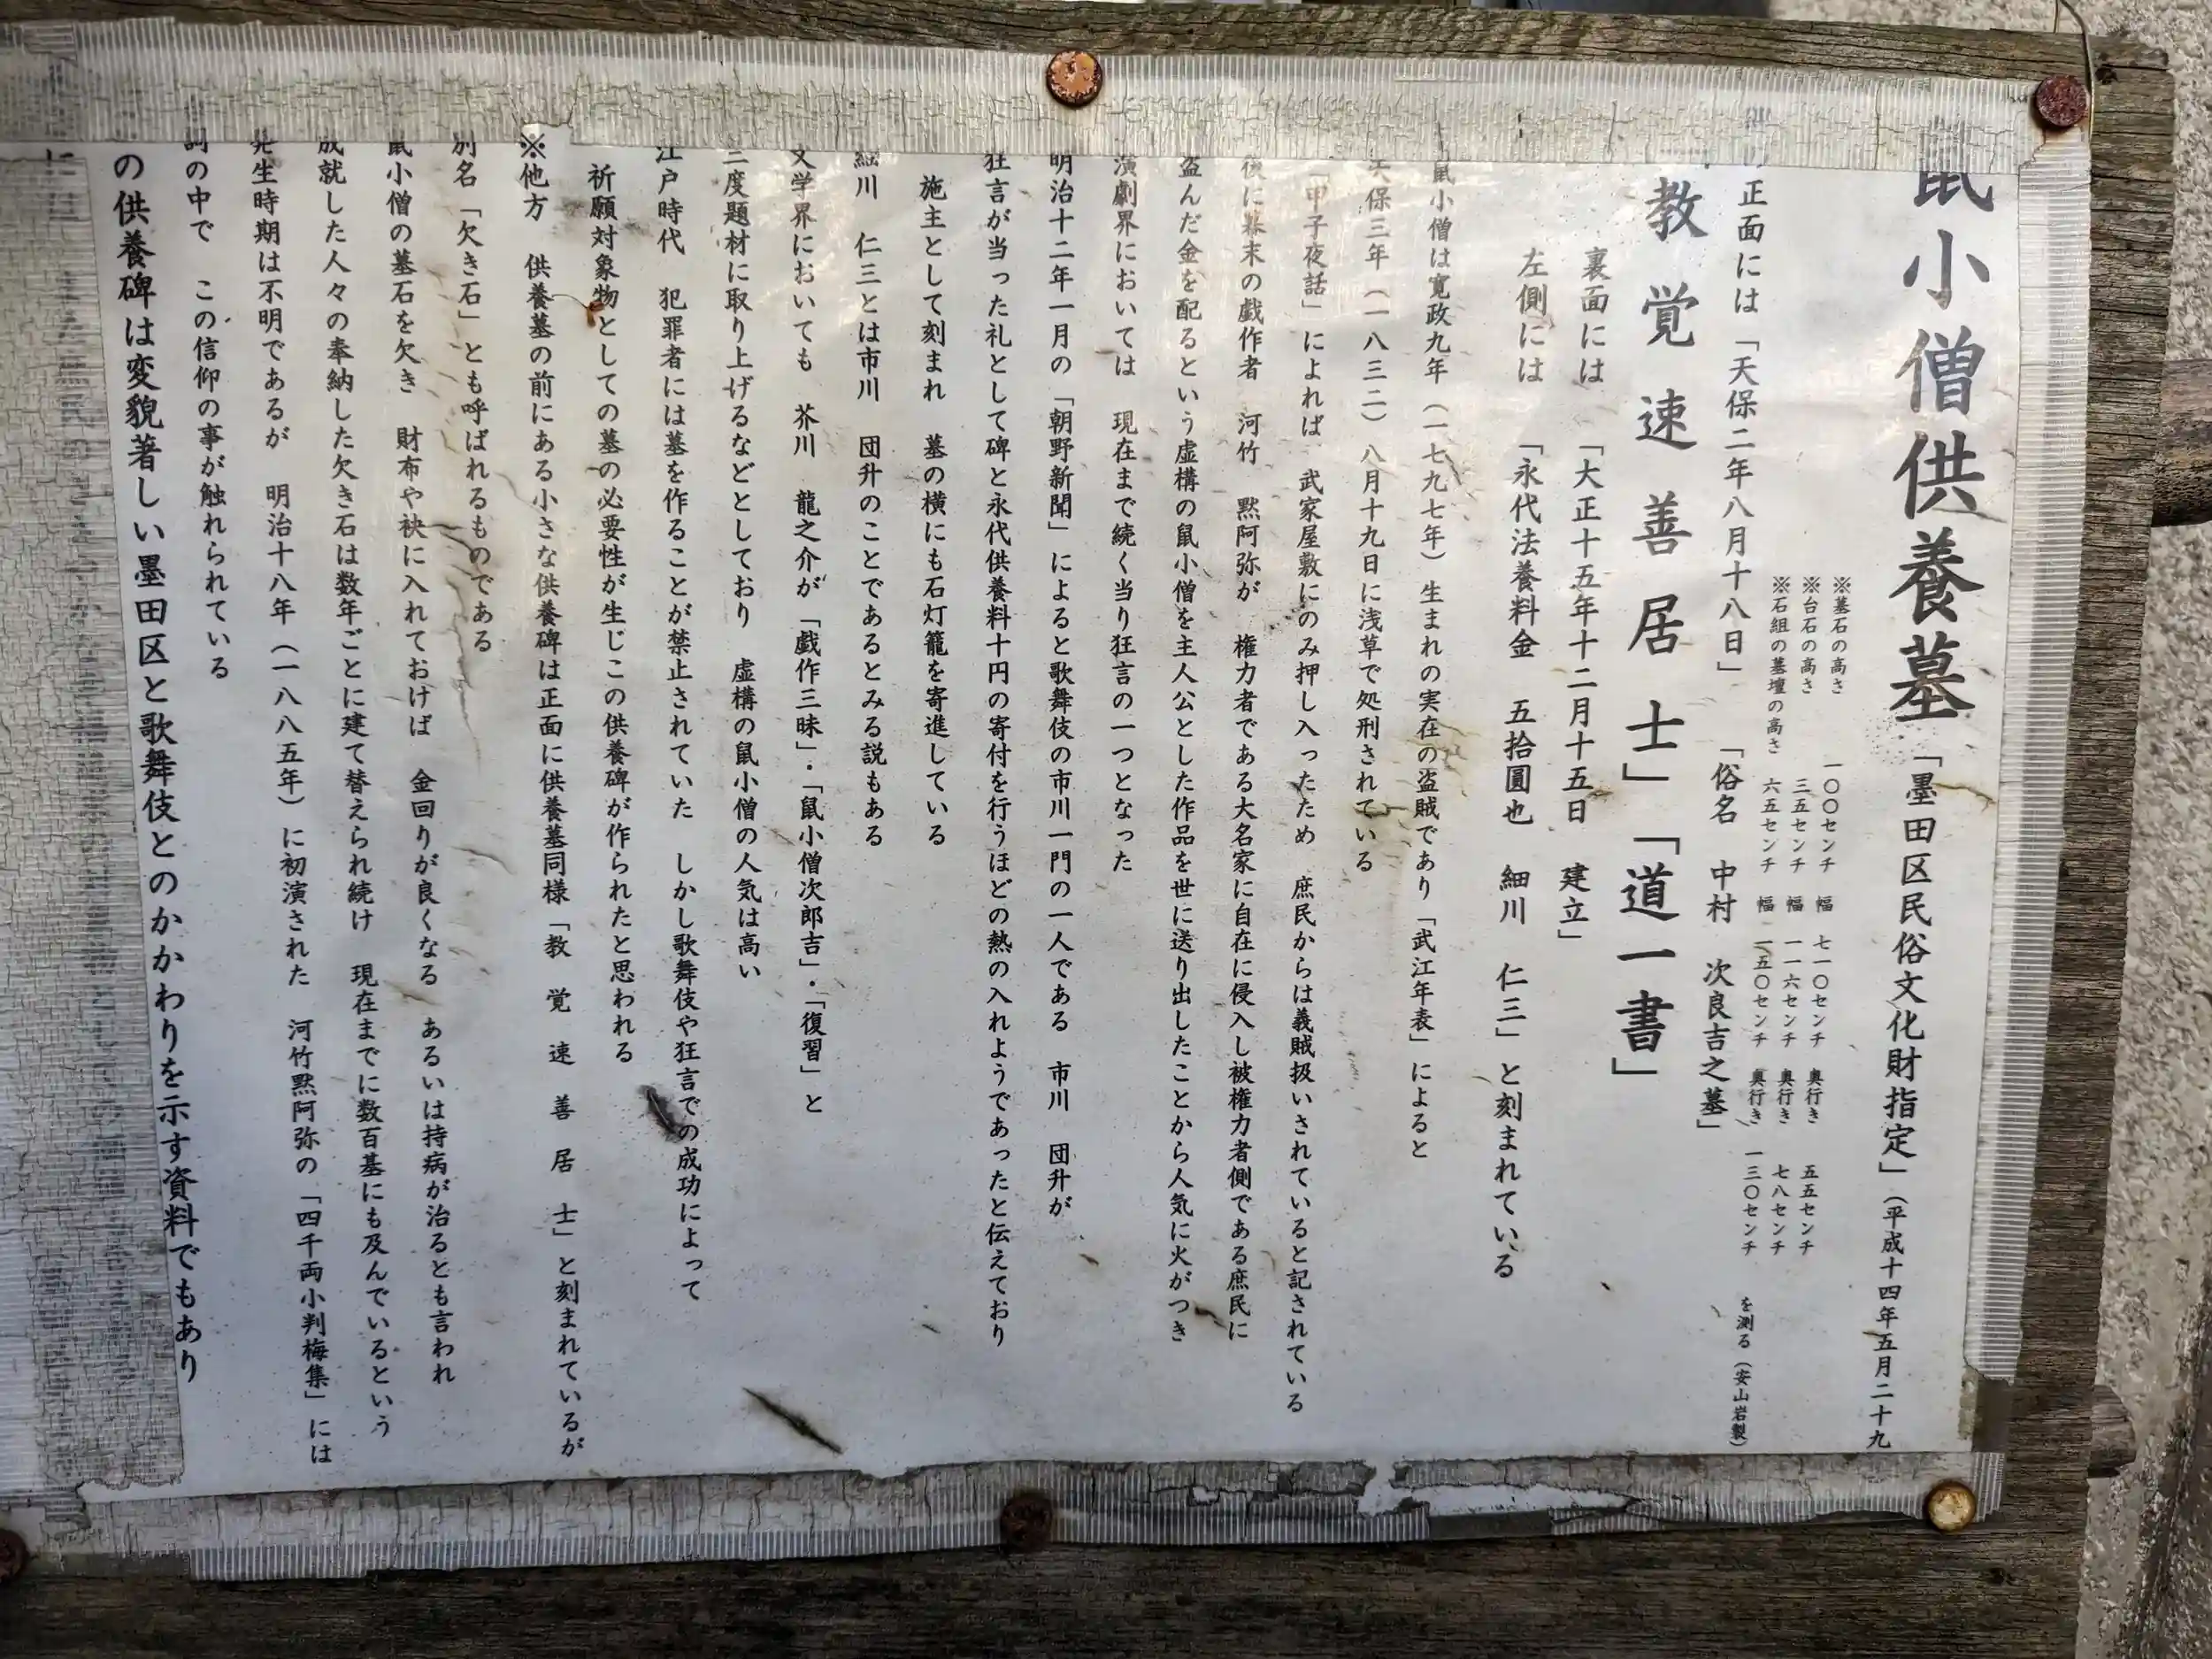 鼠小僧供養墓「墨田区民俗文化財指定」（平成十四年五月二十九
※墓石の高さ 一〇〇センチ 幅 七一〇センチ 奥行き 五五センチ
※台石の高さ 三五センチ 幅 一一六センチ 奥行き 七八センチ
※石組の墓壇の高さ 六五センチ 幅 一五〇センチ 奥行き 一三〇センチ を測る（安山岩製）
正面には「天保二年八月十八日」「俗名 中村 次良吉之墓」
教覚速善居士」「道一書」
裏面には 「大正十五年十二月十五日 建立」
左側には 「永代法養料金 五拾圓也 細川 仁三」と刻まれている
鼠小僧は寛政九年（一七九七年）生まれの実在の盗賊であり「武江年表」によると
天保三年（一八三二）八月十九日に浅草で処刑されている
「甲子夜話」によれば 武家屋敷にのみ押し入ったため 庶民からは義賊扱いされていると記されている
後に幕末の戯作者 河竹 黙阿弥が 権力者である大名家に自在に侵入し被権力者側である庶民に
盗んだ金を配るという虚構の鼠小僧を主人公とした作品を世に送り出したことから人気に火がつき
演劇界においては 現在まで続く当り狂言の一つとなった
明治十二年一月の「朝野新聞」によると歌舞伎の市川一門の一人である 市川 団升が
狂言が当った礼として碑と永代供養料十円の寄付を行うほどの熱の入れようであったと伝えており
施主として刻まれ 墓の横にも石灯籠を寄進している
細川 仁三とは市川 団升のことであるとみる説もある
文学界においても 芥川 龍之介が「戯作三昧」・「鼠小僧次郎吉」・「復習」と
三度題材に取り上げるなどとしており 虚構の鼠小僧の人気は高い
江戸時代 犯罪者には墓を作ることが禁止されていた しかし歌舞伎や狂言での成功によって
祈願対象物としての墓の必要性が生じこの供養碑が作られたと思われる
※他方 供養墓の前にある小さな供養碑は正面に供養墓同様「教 覚 速 善 居 士」と刻まれているが
別名「欠き石」とも呼ばれるものである
鼠小僧の墓石を欠き 財布や袂に入れておけば 金回りが良くなる あるいは持病が治るとも言われ
成就した人々の奉納した欠き石は数年ごとに建て替えられ続け 現在までに数百基にも及んでいるという
発生時期は不明であるが 明治十八年（一八八五年）に初演された 河竹黙阿弥の「四千両小判梅集」には
詞の中で この信仰の事が触れられている
の供養碑は変貌著しい墨田区と歌舞伎とのかかわりを示す資料でもあり